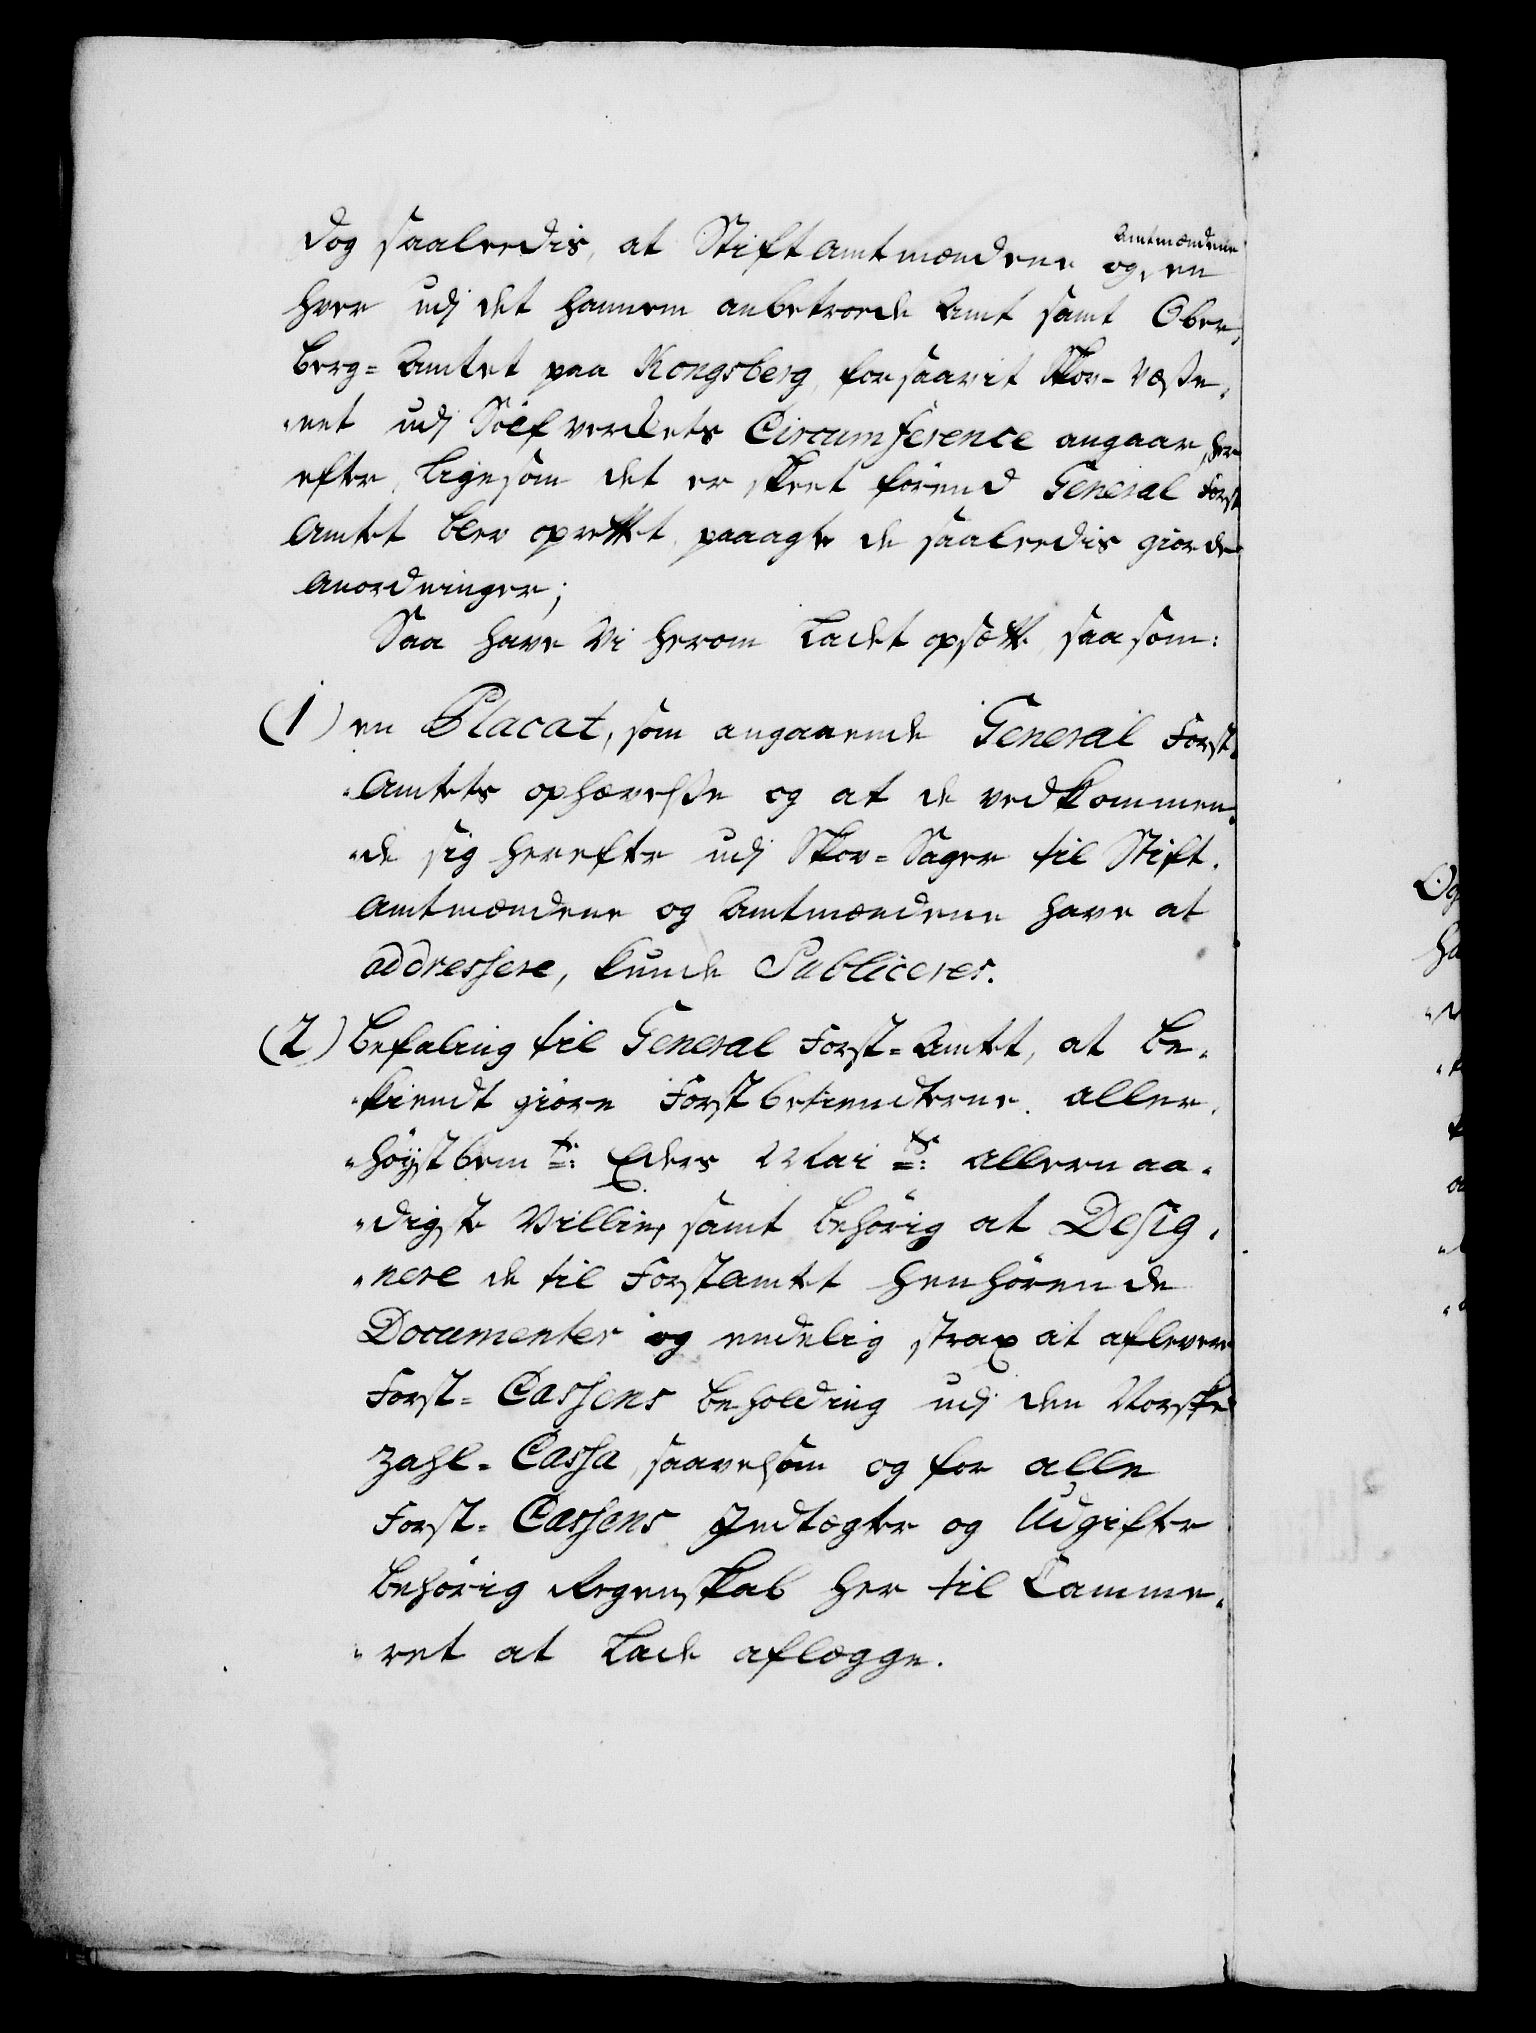 dog saaleedis, at Stiftamtmændene og Amtmændene en
hver udj det hannem anbetroede Amt samt Ober,
berg=Amtet paa Kongsberg, forsaavit Skov-Væße,
"net udj Sölfverkets Circumference angaar, her
efter, ligesom det er skeet förend General Forst
Amtet blev oprettet, paaagte de saaleedis giorde
Anordninger;
Saa have Vi herom ladet opsætte, saasom:
(1) en Placat, som angaaende General Forst,
"Amtets ophævelße og at de vedkommen,
"de sig herefter udj Skov=Sager til Stift,
Amtmændene og Amtmændene have at
addressere, kunde Publiceres.
(2) befaling til General Forst=Amtet, at be,
"kiendt giöre Forstbetiendterne aller,
"höystbemte: Eders Mais: allernaa,
"digste Villie, samt behörig at Desig,
"nere de til Forstamtet henhörende
Documenter og endelig strax at aflevere
Forst=Cassens beholding udj den Norske
Zahl=Cassa, saavelsom og for alle
Forst=Cassens Indtægter og Udgifter
behörig Regenskab her til Camme,
"ret at lade aflægge.